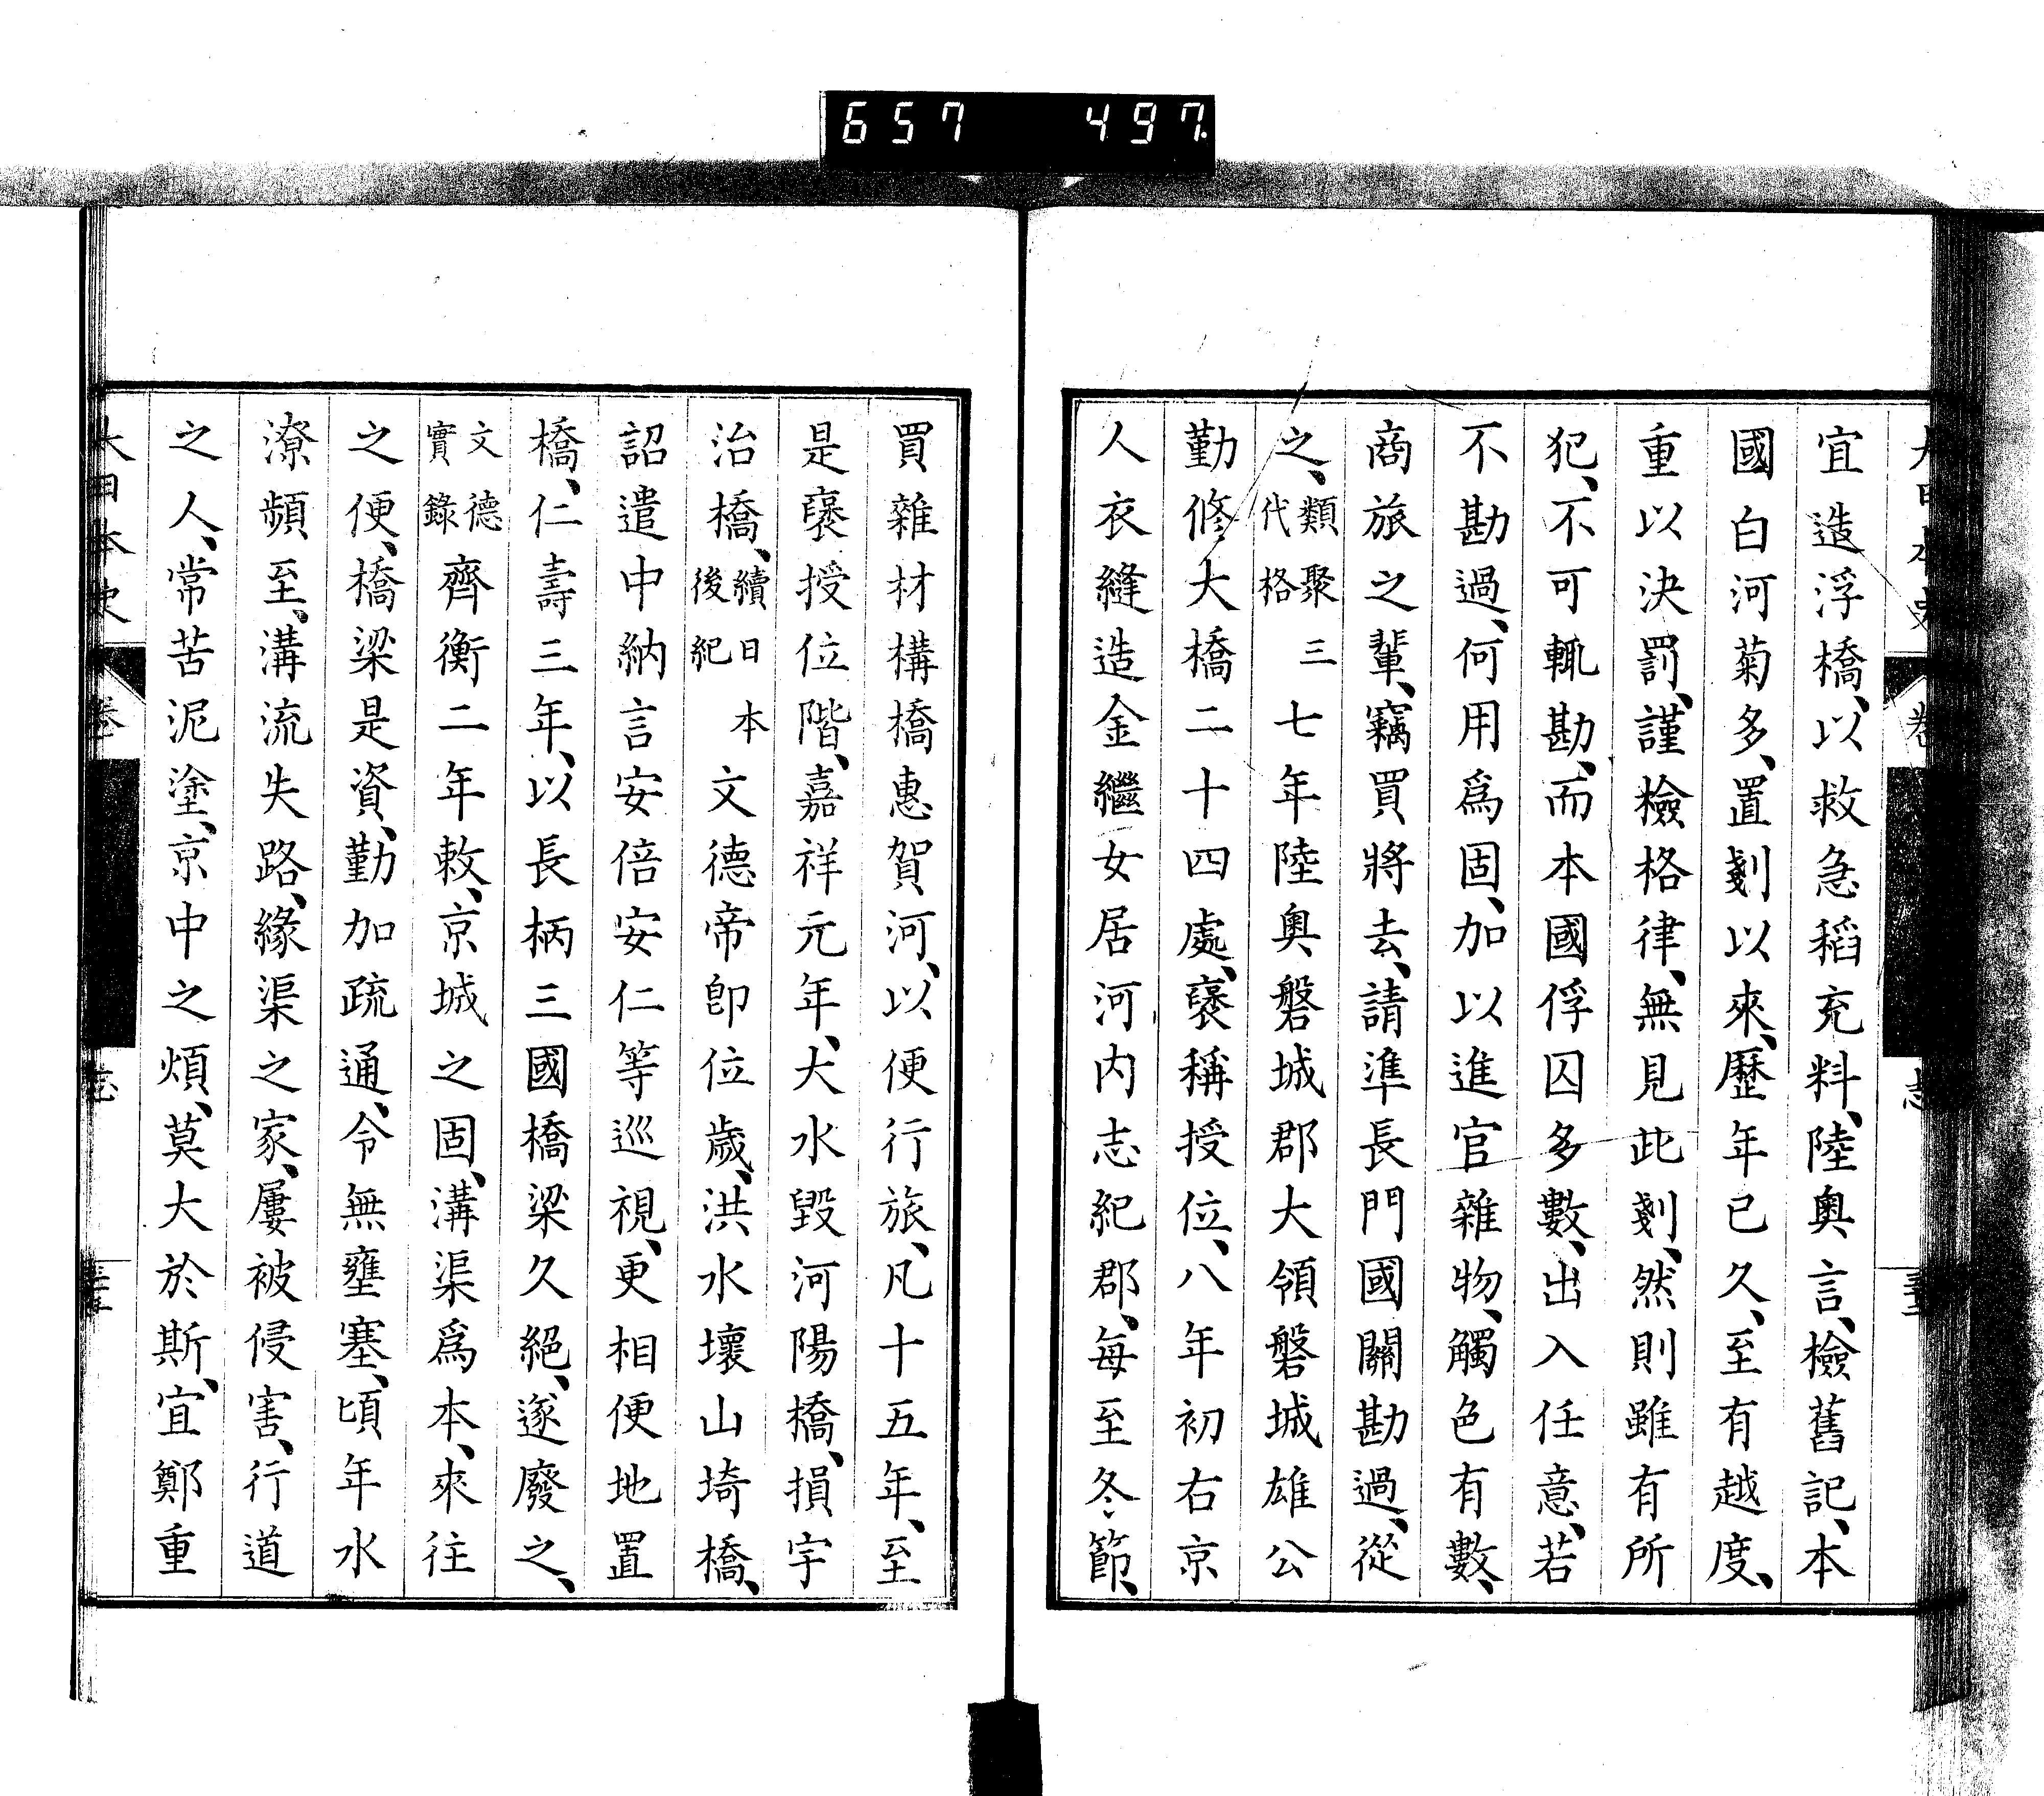 657 497
宜造浮橋、以救急稻充料、陸奧言、檢舊記、本
國白河菊多、置剗以來、歷年已久、至有越度、
重以決罰、謹檢格律、無見此剗、然則雖有所
犯、不可輒勘、而本國俘囚多數、出入任意、若
不勘過、何用爲固、加以進官雜物、觸色有數、
商旅之輩、竊買將去、請準長門國關勘過、從
之、類聚三代格七年陸奧磐城郡大領磐城雄公
勤修大橋二十四處、襃稱授位、八年初右京
人衣縫造金繼女居河内志紀郡、每至冬節、
買雜材構橋惠賀河、以便行旅、凡十五年、至
是襃授位階、嘉祥元年、大水毀河陽橋、損宇
治橋、續日本後紀文德帝卽位歲、洪水壞山埼橋、
詔遣中納言安倍安仁等巡視、更相便地置
橋、仁壽三年、以長柄三國橋梁久絕、遂廢之、
文德實錄齊衡二年敕、京城之固、溝渠爲本、來往
之便、橋梁是資、勤加疏通、令無壅塞、頃年水
潦頻至、溝流失路、緣渠之家、屢被侵害、行道
之人、常苦泥塗、京中之煩、莫大於斯、宜鄭重
大日本史 卷 志